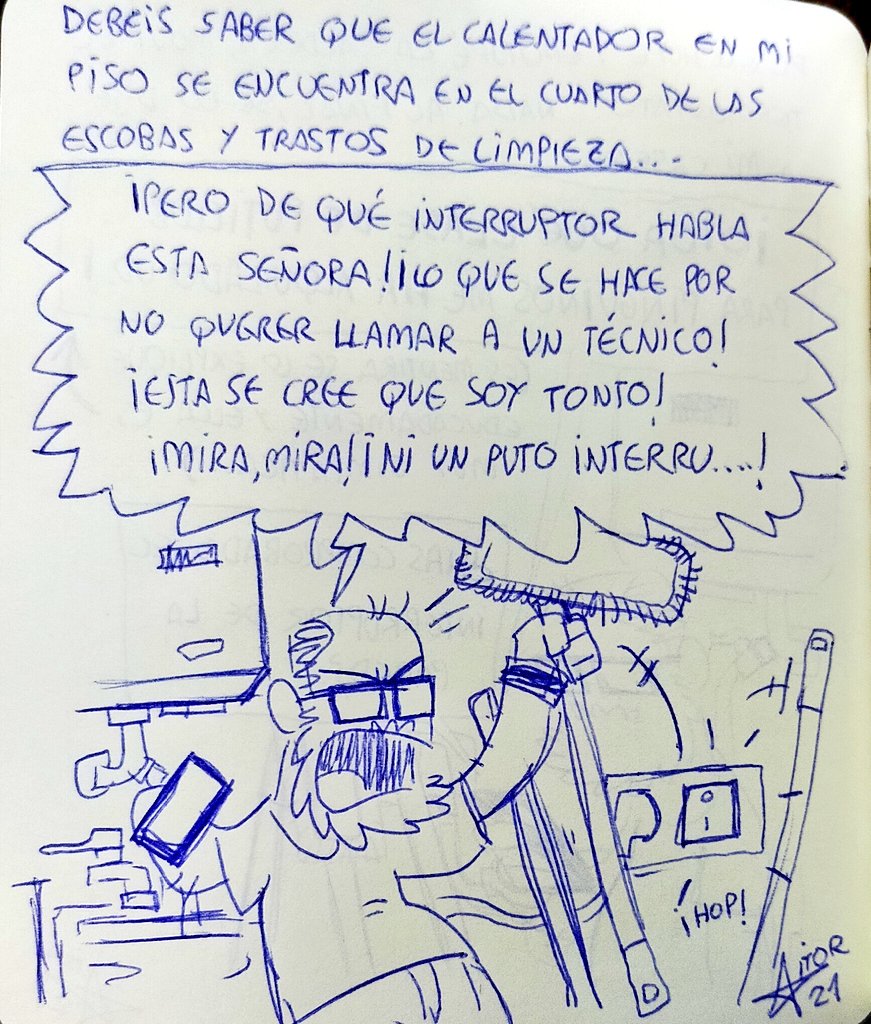 DEBEIS SABER QUE EL CALENTADOR EN MI
PISO SE ENCUENTRA EN EL CUARTO DE LAS
ESCOBAS Y TRASTOS DE LIMPIEZA...
¡PERO DE QUÉ INTERRUPTOR HABLA
ESTA SEÑORA! ¡LO QUE SE HACE POR
NO QUERER LLAMAR A UN TÉCNICO!
¡ESTA SE CREE QUE SOY TONTO!
¡MIRA, MIRA! ¡NI UN PUTO INTERRU....!
¡HOP!
AITOR
21